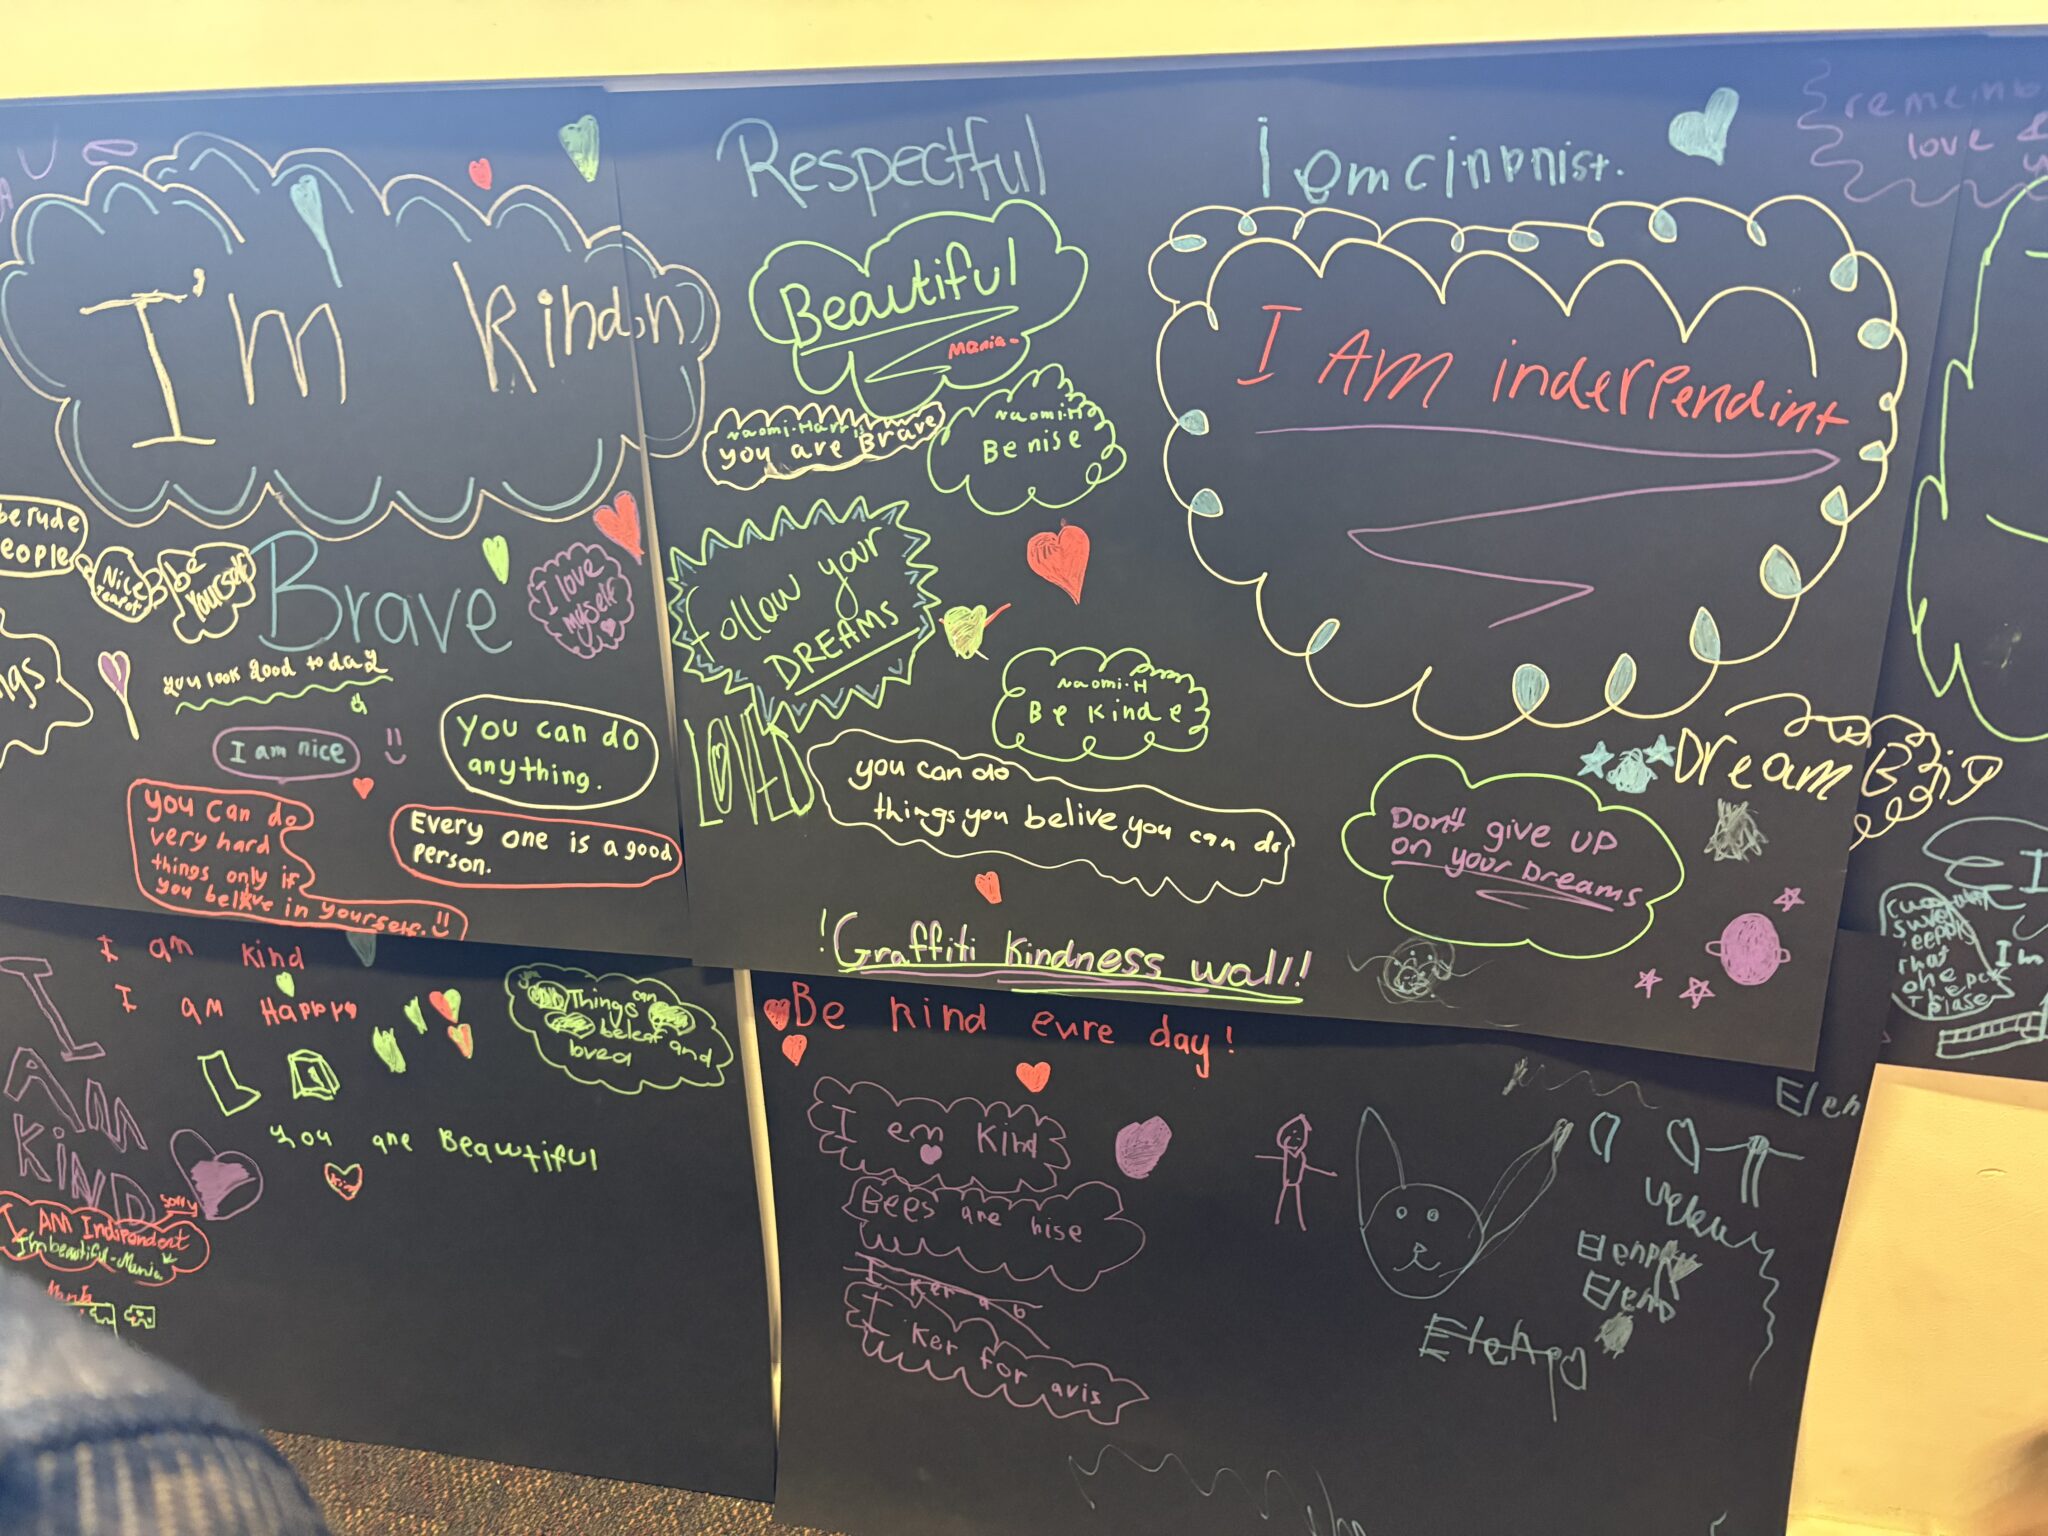 I'm kind
Respectful
I em
remem
love &
Beautiful
Mania-
I AM inderpendint
Naomi.Harris
you are Brave
Naomi.H
Be nise
be rude
eople
Nice
be
Yourself
Brave
I love
myself
follow your
DREAMS
you look good today
ngs
Naomi.H
Be kinde
LOVED
I am nice
You can do
anything.
you can do
things you belive you can do
Dream Big
Don't give up
on your Dreams
You can do
very hard
things only if
you belive in yourself.
Every one is a good
person.
!Graffiti kindness wall!
I am kind
I am Happy
I
AM
KIND
you
Things can
beleaf and
loved
You are Beautiful
Be kind evre day!
I em kind
Bees are nise
I ker a b
I ker for avis
Sorry
I AM Indipendent
I'm beautiful-Mania
Elen
Eleno
that
one
plase
I'm